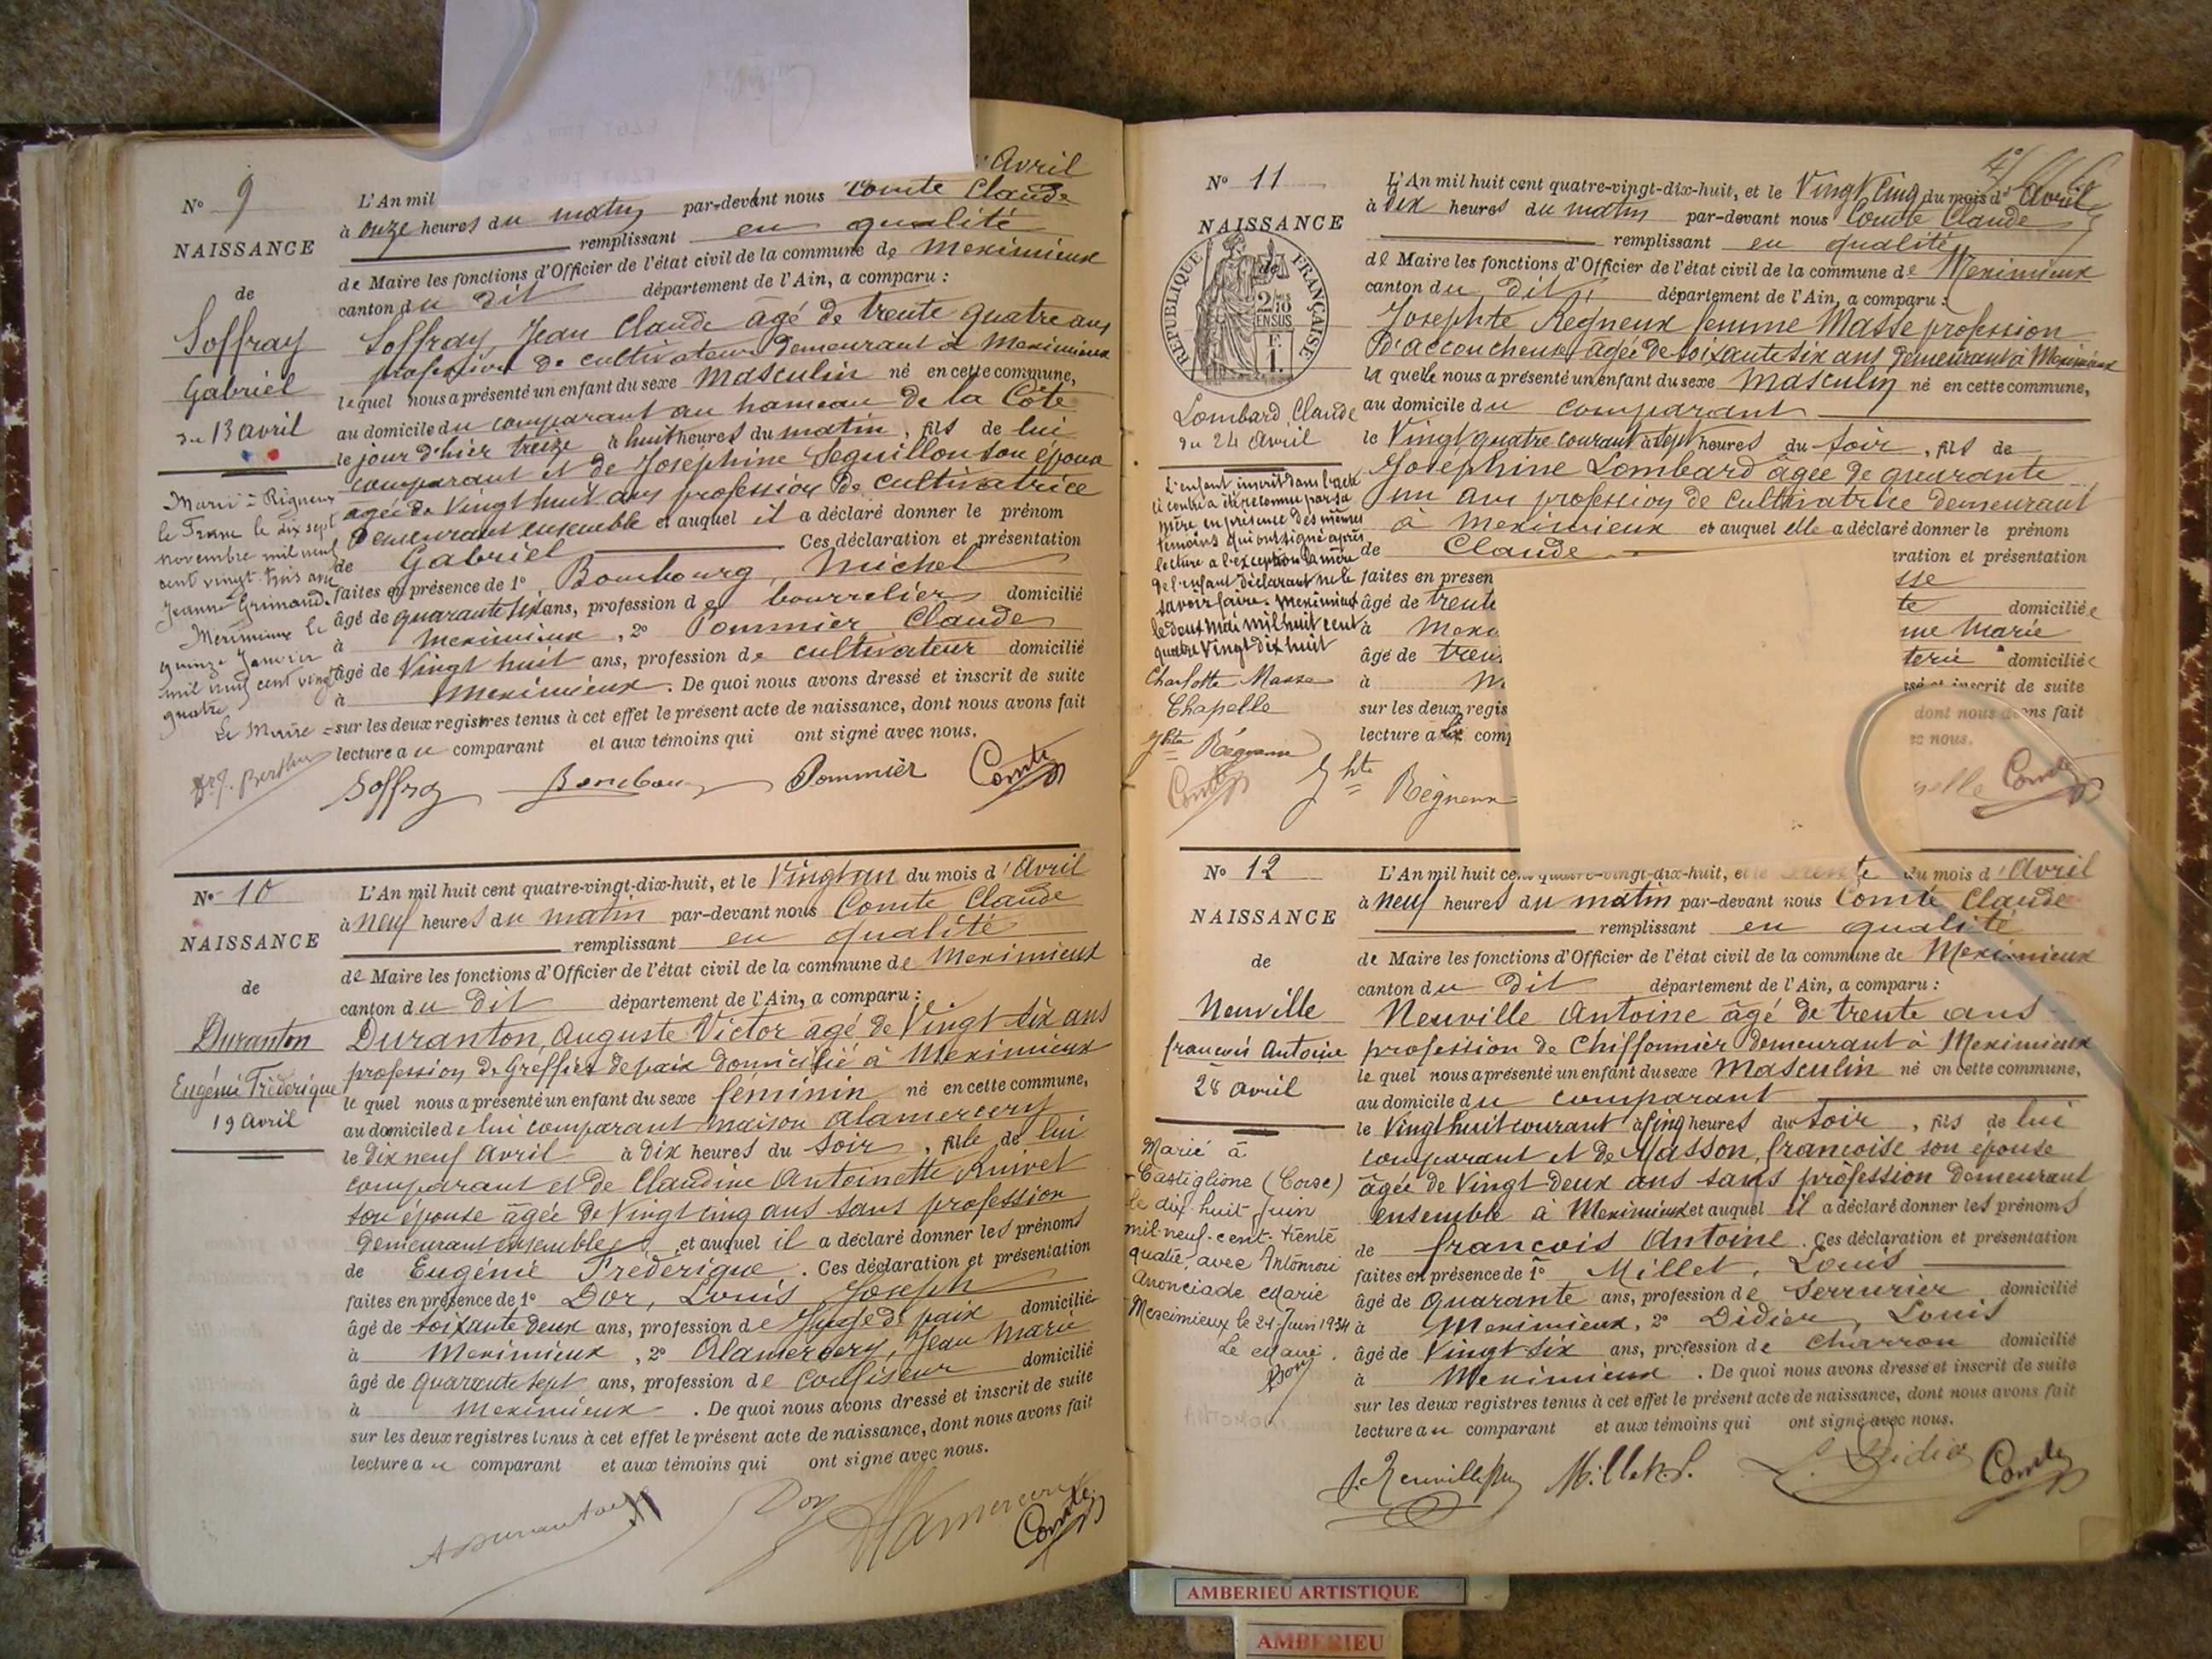 Avril
N° 9
L'An mil
à onze heures du matin par-devant nous Comte Claude
NAISSANCE
remplissant en qualité
de Maire les fonctions d'Officier de l'état civil de la commune de Meximieux
de
canton du dit département de l'Ain, a comparu :
Soffray
Soffray, Jean Claude âgé de trente quatre ans
profession de cultivateur demeurant à Meximieux
Gabriel
lequel nous a présenté un enfant du sexe Masculin né en cette commune,
du 13 avril
au domicile du comparant au hameau de la Côte
le jour d'hier treize à huit heures du matin, fils de lui
comparant et de Josephine Seguillon son épouse
agée de Vingt huit ans profession de cultivatrice
demeurant ensemble et auquel il a déclaré donner le prénom
de Gabriel Ces déclaration et présentation
faites en présence de 1° Bombourg, Michel
âgé de quarante six ans, profession de bourrelier domicilié
à Meximieux, 2° Pommier Claude
âgé de Vingt huit ans, profession de cultivateur domicilié
à Meximieux. De quoi nous avons dressé et inscrit de suite
sur les deux registres tenus à cet effet le présent acte de naissance, dont nous avons fait
lecture au comparant et aux témoins qui ont signé avec nous.
Marié à Rigneux
le Franc le dix sept
novembre mil neuf
cent vingt-trois avec
Jeanne Grimand.
Meximieux le
quinze Janvier
mil neuf cent vingt
quatre
Le Maire
Soffray Pommier Comte
N° 10
L'An mil huit cent quatre-vingt-dix-huit, et le Vingt un du mois d'Avril
à neuf heures du matin par-devant nous Comte Claude
NAISSANCE
remplissant en qualité
de Maire les fonctions d'Officier de l'état civil de la commune de Meximieux
de
canton du dit département de l'Ain, a comparu :
Duranton
Duranton, Auguste Victor âgé de Vingt six ans
profession de Greffier de paix domicilié à Meximieux
Eugénie Fréderique
le quel nous a présenté un enfant du sexe féminin né en cette commune,
19 avril
au domicile de lui comparant maison Alamercery
le dix neuf Avril à dix heures du soir, fille de lui
comparant et de Claudine Antoinette Ruivet
son épouse âgée de Vingt cinq ans sans profession
demeurant ensemble et auquel il a déclaré donner les prénoms
de Eugénie Fréderique. Ces déclaration et présentation
faites en présence de 1° Dor, Louis Joseph
âgé de soixante deux ans, profession de Juge de paix domicilié
à Meximieux, 2° Alamercery, Jean Marie
âgé de quarante sept ans, profession de confiseur domicilié
à Meximieux. De quoi nous avons dressé et inscrit de suite
sur les deux registres tenus à cet effet le présent acte de naissance, dont nous avons fait
lecture au comparant et aux témoins qui ont signé avec nous.
A Duranton Dor Alamercery
Comte
N° 11
L'An mil huit cent quatre-vingt-dix-huit, et le Vingt cinq du mois d'Avril
à dix heures du matin par-devant nous Comte Claude
NAISSANCE
remplissant en qualité
de Maire les fonctions d'Officier de l'état civil de la commune de Meximieux
canton du dit département de l'Ain, a comparu :
RÉPUBLIQUE FRANÇAISE
de
2/10
EN SUS
F.
1.
Josephte Regneux femme Masse profession
d'accoucheuse, agée de soixante six ans demeurant à Meximieux
la quelle nous a présenté un enfant du sexe Masculin né en cette commune,
Lombard, Claude
du 24 avril
au domicile du comparant
le Vingt quatre courant à sept heures du soir, fils de
Josephine Lombard âgée de quarante
un ans profession de cultivatrice demeurant
à Meximieux et auquel elle a déclaré donner le prénom
de Claude
ration et présentation
faites en présen
sse
âgé de trente
te domiciliée
à Mexi
me Marie
âgé de
terie domiciliée
à M
inscrit de suite
sur les deux regis
dont nous avons fait
lecture à la comp
nous.
L'enfant inscrit dans l'acte
ci contre a été reconnu par sa
mère en présence des mêmes
témoins qui ont signé après
lecture à l'exception la mère
de l'enfant déclarant ne le
savoir faire. Meximieux
le deux mai mil huit cent
quatre Vingt dix huit
Charlotte Masse
Chapelle
Jhte Régneux
Comte
Jhte Régneux
elle Comte
N° 12
L'An mil huit cent quatre-vingt-dix-huit, et le te du mois d'Avril
à neuf heures du matin par-devant nous Comte Claude
NAISSANCE
remplissant en qualité
de
de Maire les fonctions d'Officier de l'état civil de la commune de Meximieux
canton du dit département de l'Ain, a comparu :
Neuville
Neuville Antoine âgé de trente ans
françois Antoine
profession de Chiffonnier demeurant à Meximieux
le quel nous a présenté un enfant du sexe Masculin né en cette commune,
28 avril
au domicile du comparant
le Vingt huit courant à cinq heures du soir, fils de lui
comparant et de Masson, francoise son épouse
âgée de Vingt deux ans sans profession demeurant
ensemble à Meximieux et auquel il a déclaré donner les prénoms
de francois Antoine. Ces déclaration et présentation
faites en présence de 1° Millet, Louis
âgé de quarante ans, profession de Serrurier domicilié
à Meximieux, 2° Didier, Louis
âgé de Vingt six ans, profession de charron domicilié
à Meximieux. De quoi nous avons dressé et inscrit de suite
sur les deux registres tenus à cet effet le présent acte de naissance, dont nous avons fait
lecture au comparant et aux témoins qui ont signé avec nous.
Marié à
Castiglione (Corse)
le dix huit Juin
mil-neuf-cent-trente
quatre, avec Antomori
Anonciade Marie
Meximieux le 21 Juin 1934
Le Maire.
L. Didier Comte
AMBERIEU ARTISTIQUE
AMBERIEU